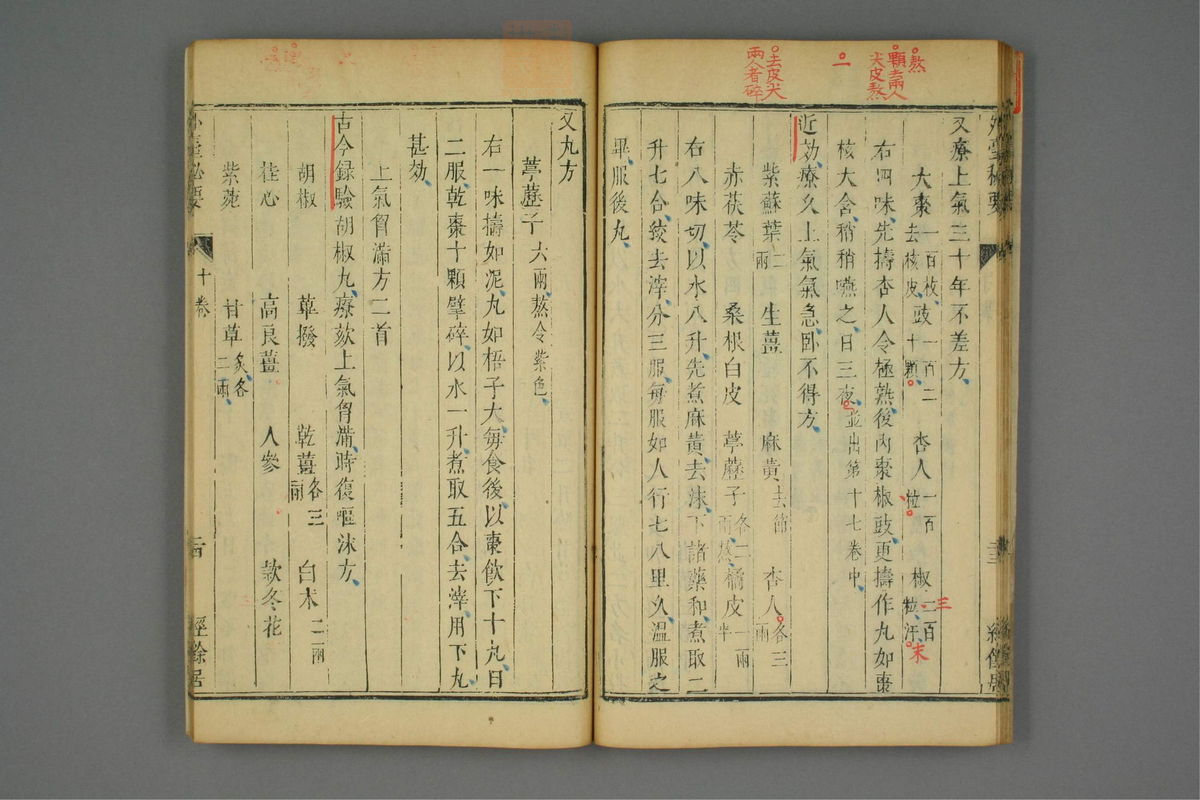 熬
顆去兩人
尖皮熬
一
去皮尖
兩人者碎
外臺秘要
又療上氣三十年不差方
大棗一百枚去核皮 豉一百二十顆 杏人一百粒 椒二百粒汗
三
末
右四味先擣杏人令極熟後內棗椒豉更擣作丸如棗
核大含稍稍嚥之日三夜一並出第十七卷中
近効療久上氣氣急卧不得方
紫蘇葉二兩 生薑 麻黃去節 杏人各三兩
赤茯苓 桑根白皮 葶藶子各二兩熬 橘皮一兩半
右八味切以水八升先煮麻黃去沫下諸藥和煮取二
升七合絞去滓分三服每服如人行七八里久溫服之
畢服後丸
又丸方
葶藶子六兩熬令紫色
右一味擣如泥丸如梧子大每食後以棗飲下十丸日
二服乾棗十顆擘碎以水一升煮取五合去滓用下丸
甚効
上氣胷滿方二首
古今錄驗胡椒丸療欬上氣胷滿時復嘔沫方
胡椒 蓽撥 乾薑各三兩 白朮二兩
桂心 高良薑 人參 款冬花
紫菀 甘草炙各二兩
外臺秘要
十卷
經餘居